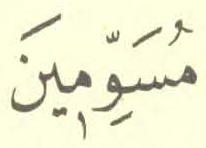 مُسَوِّمِينَ
١